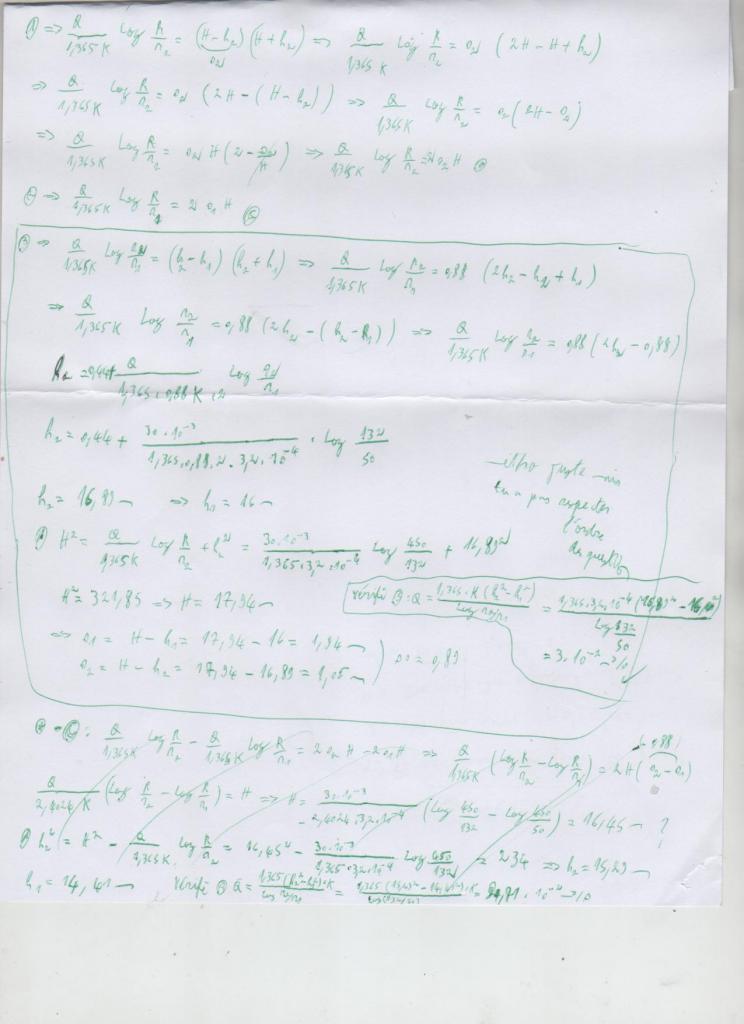 ① => Q/1,365K Log R/r₂ = (H-h₂)(H+h₂) => Q/1,365K Log R/r₂ = s₂ (2H-H+h₂)
s₂
=> Q/1,365K Log R/r₂ = s₂ (2H-(H-h₂)) => Q/1,365K Log R/r₂ = s₂(2H-s₂)
=> Q/1,365K Log R/r₂ = s₂ H(2-s₂/H) => Q/1,365K Log R/r₂ = 2 s₂ H
=> Q/1,365K Log R/r₁ = 2 s₁ H ⑤
③ => Q/1,365K Log r₂/r₁ = (h₂-h₁)(h₂+h₁) => Q/1,365K Log r₂/r₁ = 0,88 (2h₂-h₂+h₁)
=> Q/1,365K Log r₂/r₁ = 0,88(2h₂-(h₂-h₁)) => Q/1,365K Log r₂/r₁ = 0,88(2h₂-0,88)
h₂ = 0,44+ Q/1,365.0,88K.2 Log r₂/r₁
h₂ = 0,44 + 30.10⁻³/1,365.0,88.2.3,2.10⁻⁴ . Log 132/50
h₂ = 16,89 m => h₁ = 16 m
juste
tu a pas respecter
l'ordre
H² = Q/1,365K Log R/r₂ + h₂² = 30.10⁻³/1,365.3,2.10⁻⁴ Log 450/132 + 16,89²
H² = 321,85 => H = 17,94 m
vérifi ③: Q = 1,365.K(h₂²-h₁²)/Log r₂/r₁ = 1,365.3,2.10⁻⁴(16,89²-16,10²)/Log 132/50
=> s₁ = H-h₁ = 17,94-16 = 1,94 m
s₂ = H-h₂ = 17,94-16,89 = 1,05 m ) Δs = 0,89
= 3.10⁻² m³/s ✓
Q/1,365K Log R/r₂ - Q/1,365K Log R/r₁ = 2 s₂ H - 2 s₁ H => Q/1,365K (Log R/r₂ - Log R/r₁) = 2H(s₂-s₁)
Q/2,4024K (Log R/r₂ - Log R/r₁) = H => H = 30.10⁻³/-2,4024.3,2.10⁻⁴ (Log 450/132 - Log 450/50) = 16,45 m ?
h₂² = H² - Q/1,365K. Log R/r₂ = 16,45² - 30.10⁻³/1,365.3,2.10⁻⁴ Log 450/132 = 234 => h₂ = 15,29 m
h₁ = 14,41 m vérifi ③ Q = 1,365(h₂²-h₁²)K/Log r₂/r₁